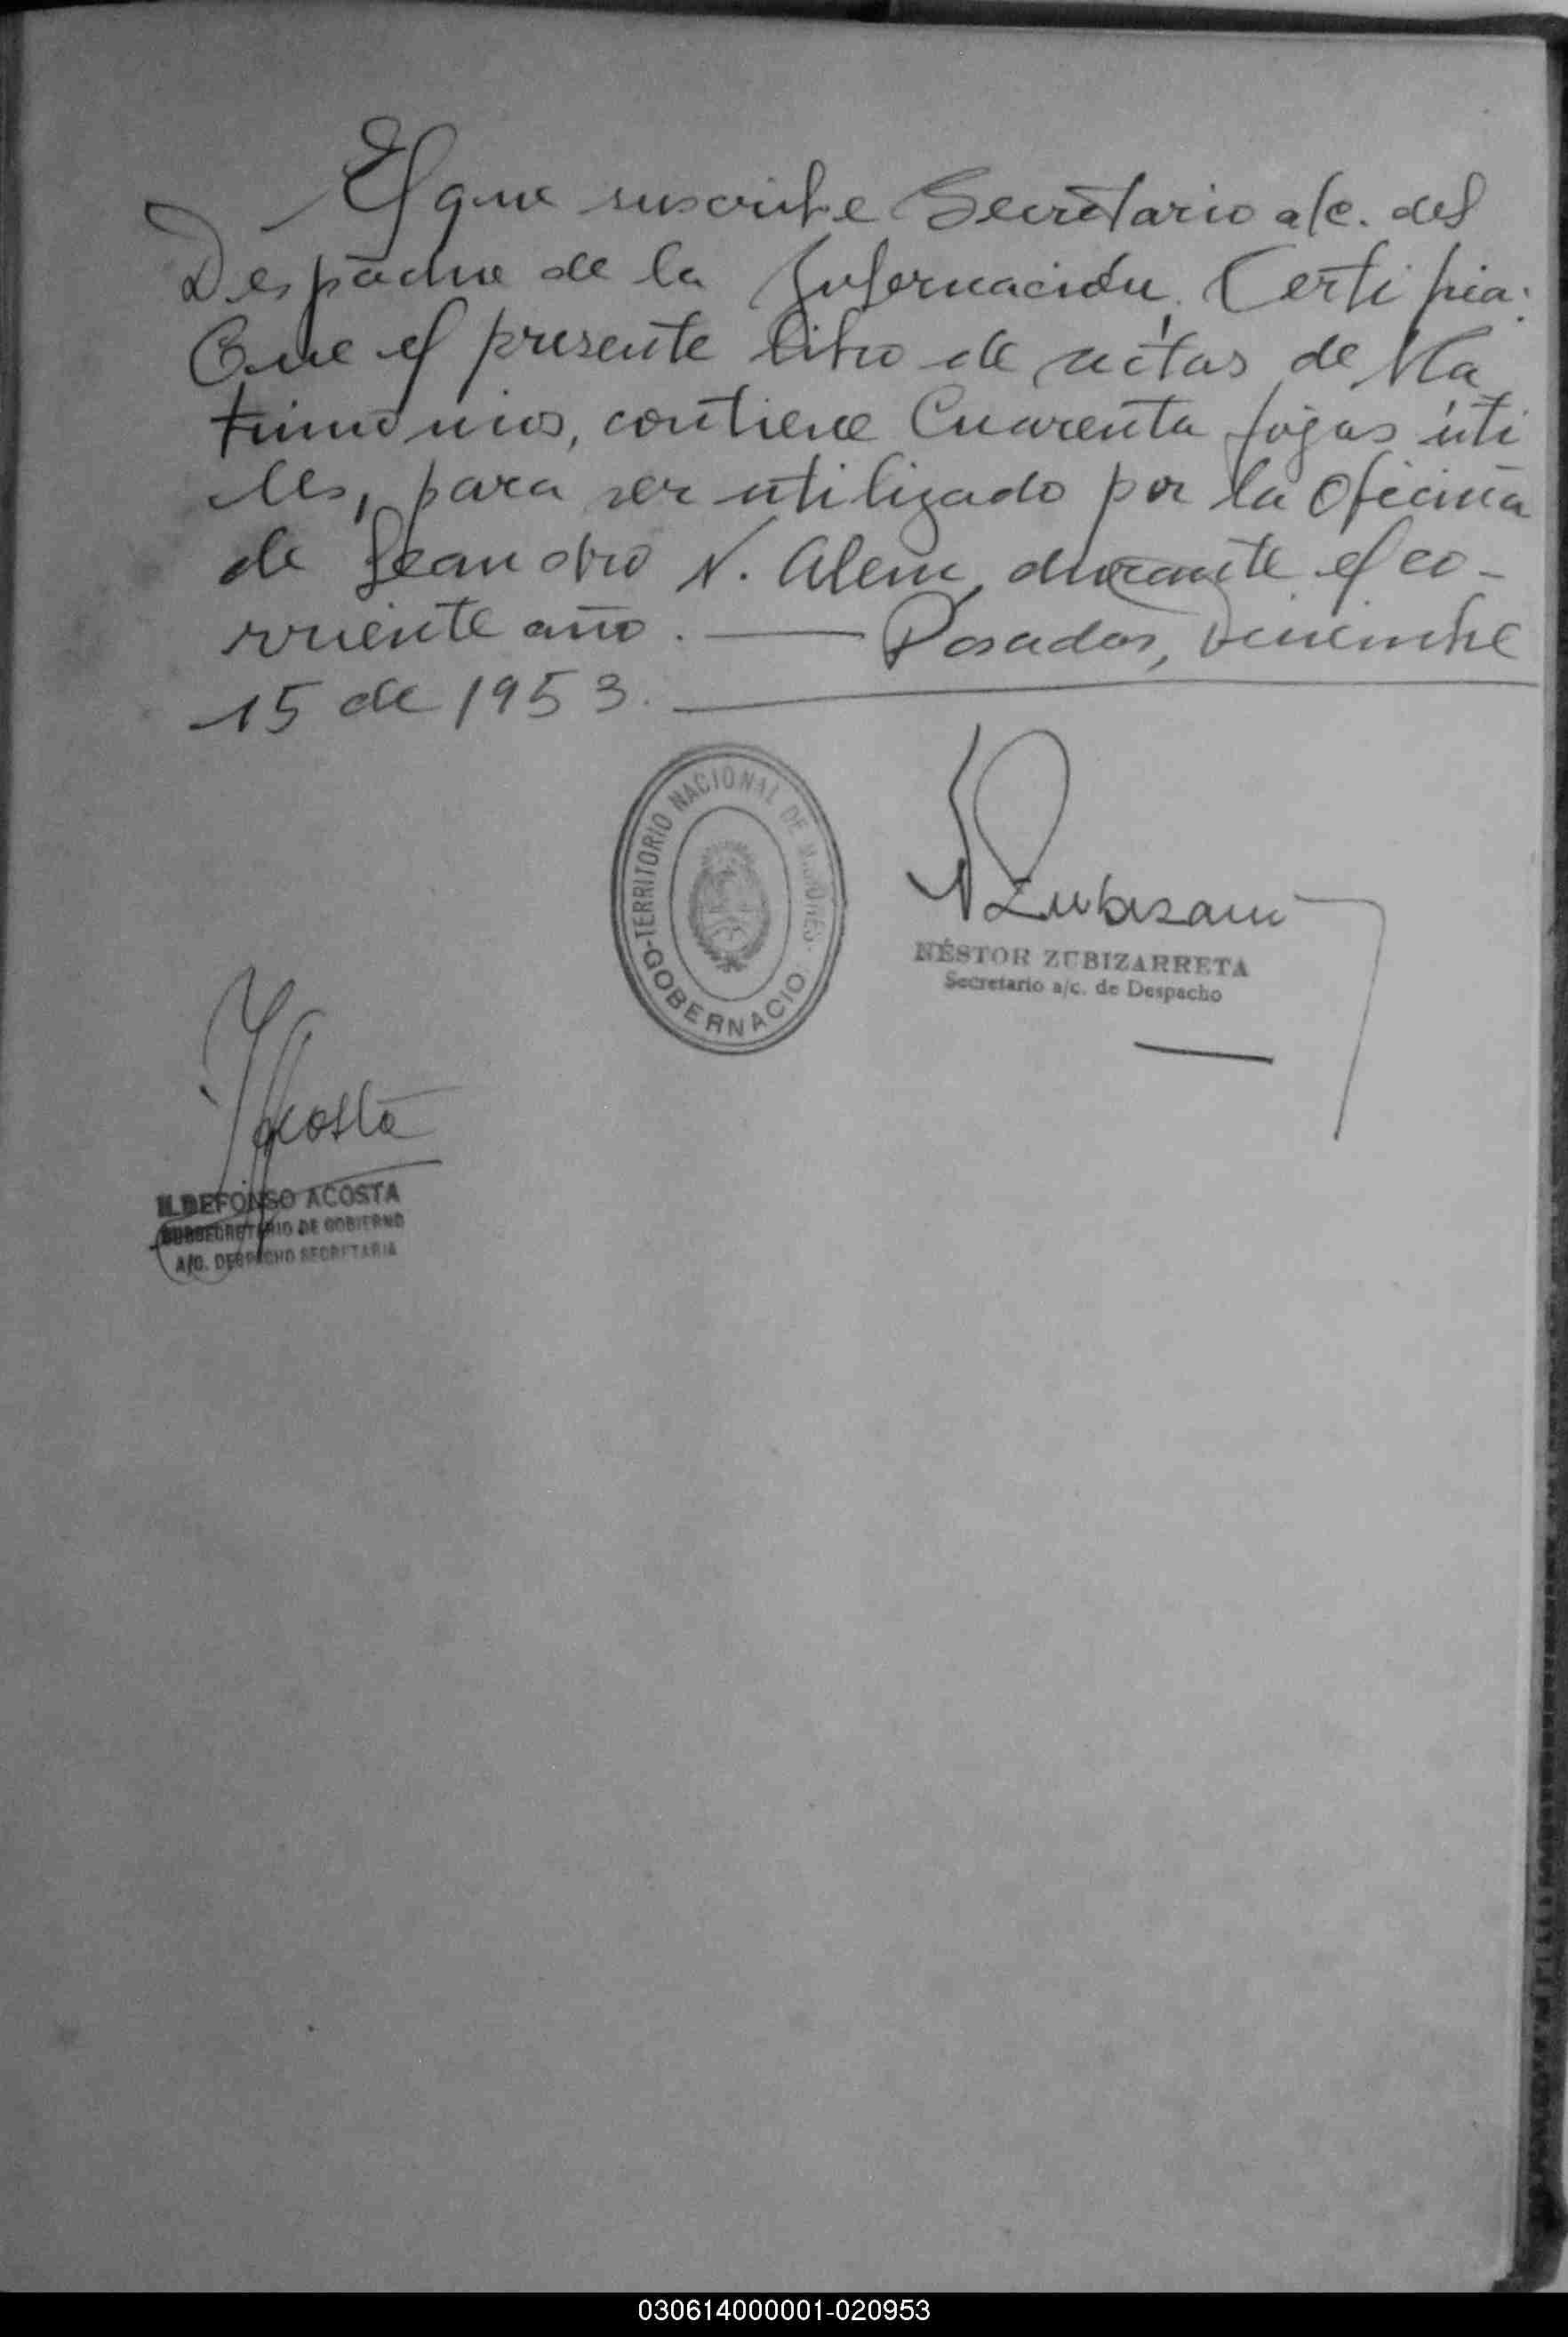 El que suscribe Secretario a/c. del
Despacho de la Gobernación, Certifica:
Que el presente libro de actas de Ma
trimonios, contiene Cuarenta fojas úti
les, para ser utilizado por la Oficina
de Leandro N. Alem, durante el co-
rriente año. — Posadas, Diciembre
15 de 1953.
TERRITORIO NACIONAL DE MISIONES
GOBERNACIO
NÉSTOR ZUBIZARRETA
Secretario a/c. de Despacho
Acosta
ILDEFONSO ACOSTA
SUBSECRETARIO DE GOBIERNO
A/C. DESPACHO SECRETARIA
030614000001-020953